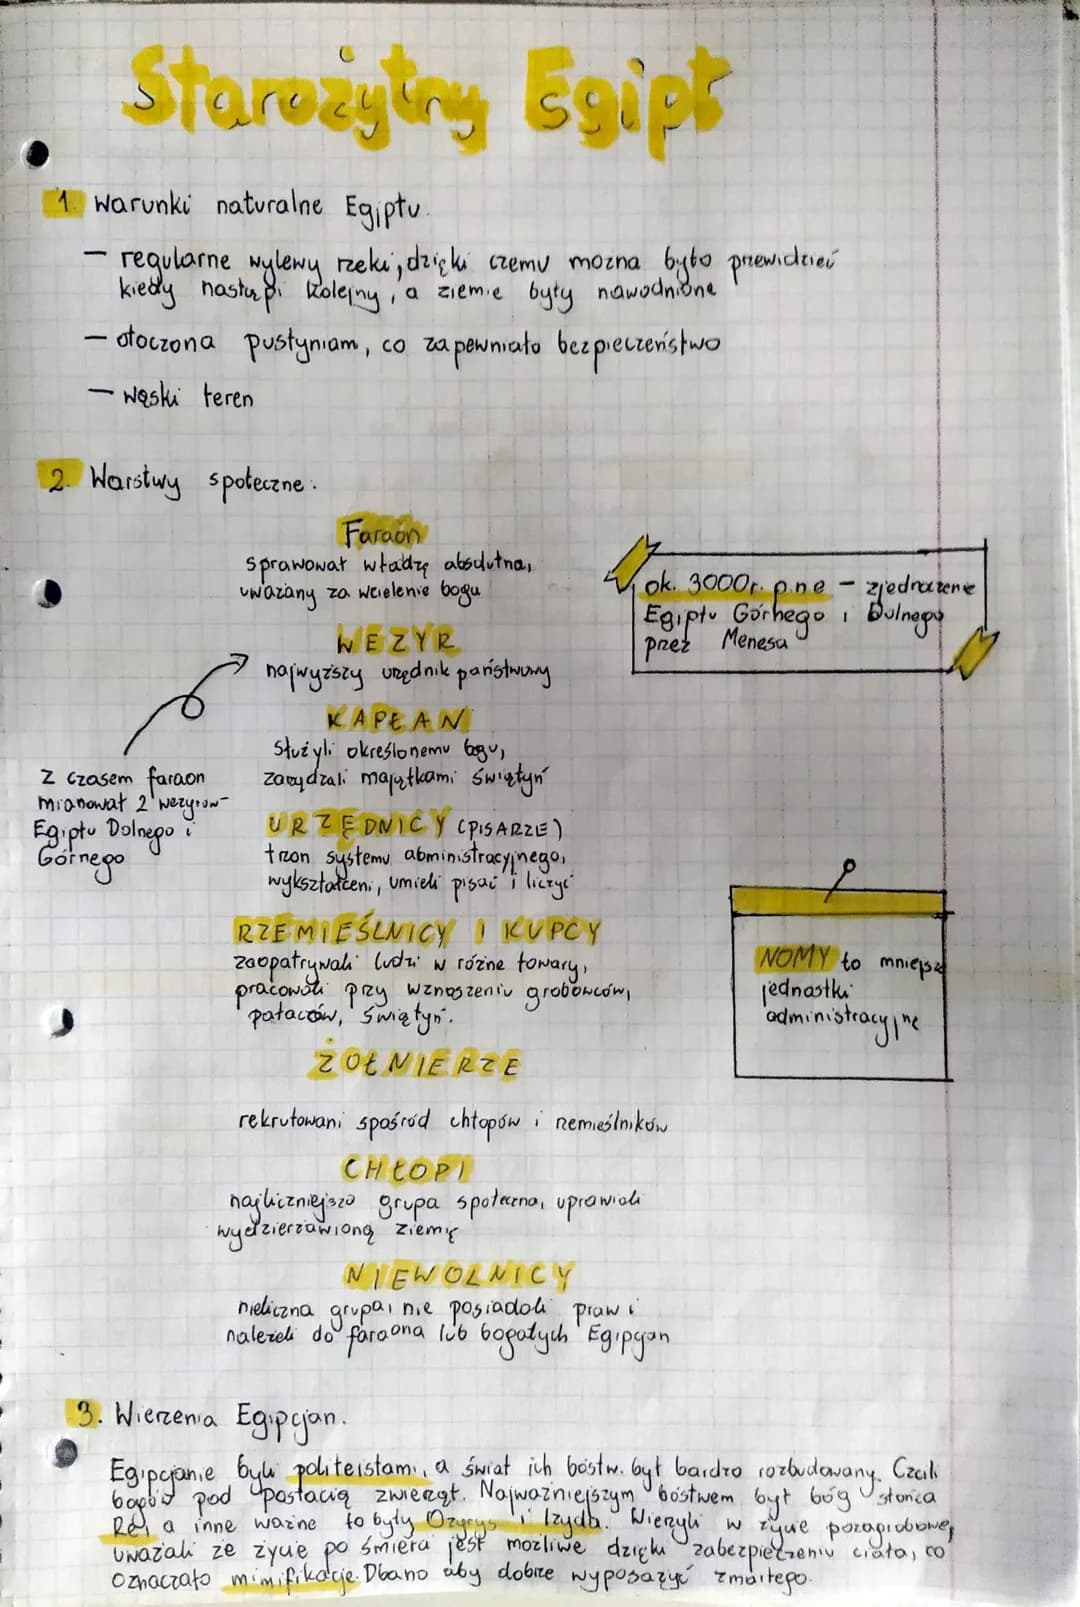 Starożytny Egipt
1. Warunki naturalne Egiptu.
– regularne wylewy rzeki, dzięki czemu można było przewidzieć
kiedy nastąpi kolejny, a ziemie były nawodnione
– otoczona pustyniam, co zapewniało bezpieczeństwo
– wąski teren
2. Warstwy społeczne:
Faraon
sprawował władzę absolutną,
uważany za wcielenie bogu
WEZYR
najwyższy urzędnik państwowy
KAPŁANI
Służyli określonemu bogu,
zarządzali majątkami świątyń
URZĘDNICY (PISARZE)
trzon systemu abministracyjnego,
wykształceni, umieli pisać i liczyć
RZEMIEŚLNICY I KUPCY
zaopatrywali ludzi w różne towary,
pracowali przy wznoszeniu grobowców,
pałaców, świątyń.
ŻOŁNIERZE
rekrutowani spośród chłopów i rzemieślników
CHŁOPI
najliczniejsza grupa społeczna, uprawiali
wydzierżawioną ziemię
NIEWOLNICY
nieliczna grupa, nie posiadali praw i
należeli do faraona lub bogatych Egipcjan
Z czasem faraon
mianował 2 wezyrów –
Egiptu Dolnego i
Górnego
ok. 3000r. p.n.e – zjednoczenie
Egiptu Górnego i Dolnego
przez Menesa
NOMY to mniejsze
jednostki
administracyjne
3. Wierzenia Egipcjan.
Egipcjanie byli politeistami, a świat ich bóstw. był bardzo rozbudowany. Czcili
bogów pod postacią zwierząt. Najważniejszym bóstwem był bóg słońca
Re, a inne ważne to były Ozyrys i Izyda. Wierzyli w życie pozagrobowe,
uważali że życie po śmierci jest możliwe dzięki zabezpieczeniu ciała, co
oznaczało mimifikacje. Dbano aby dobrze wyposażyć zmarłego.